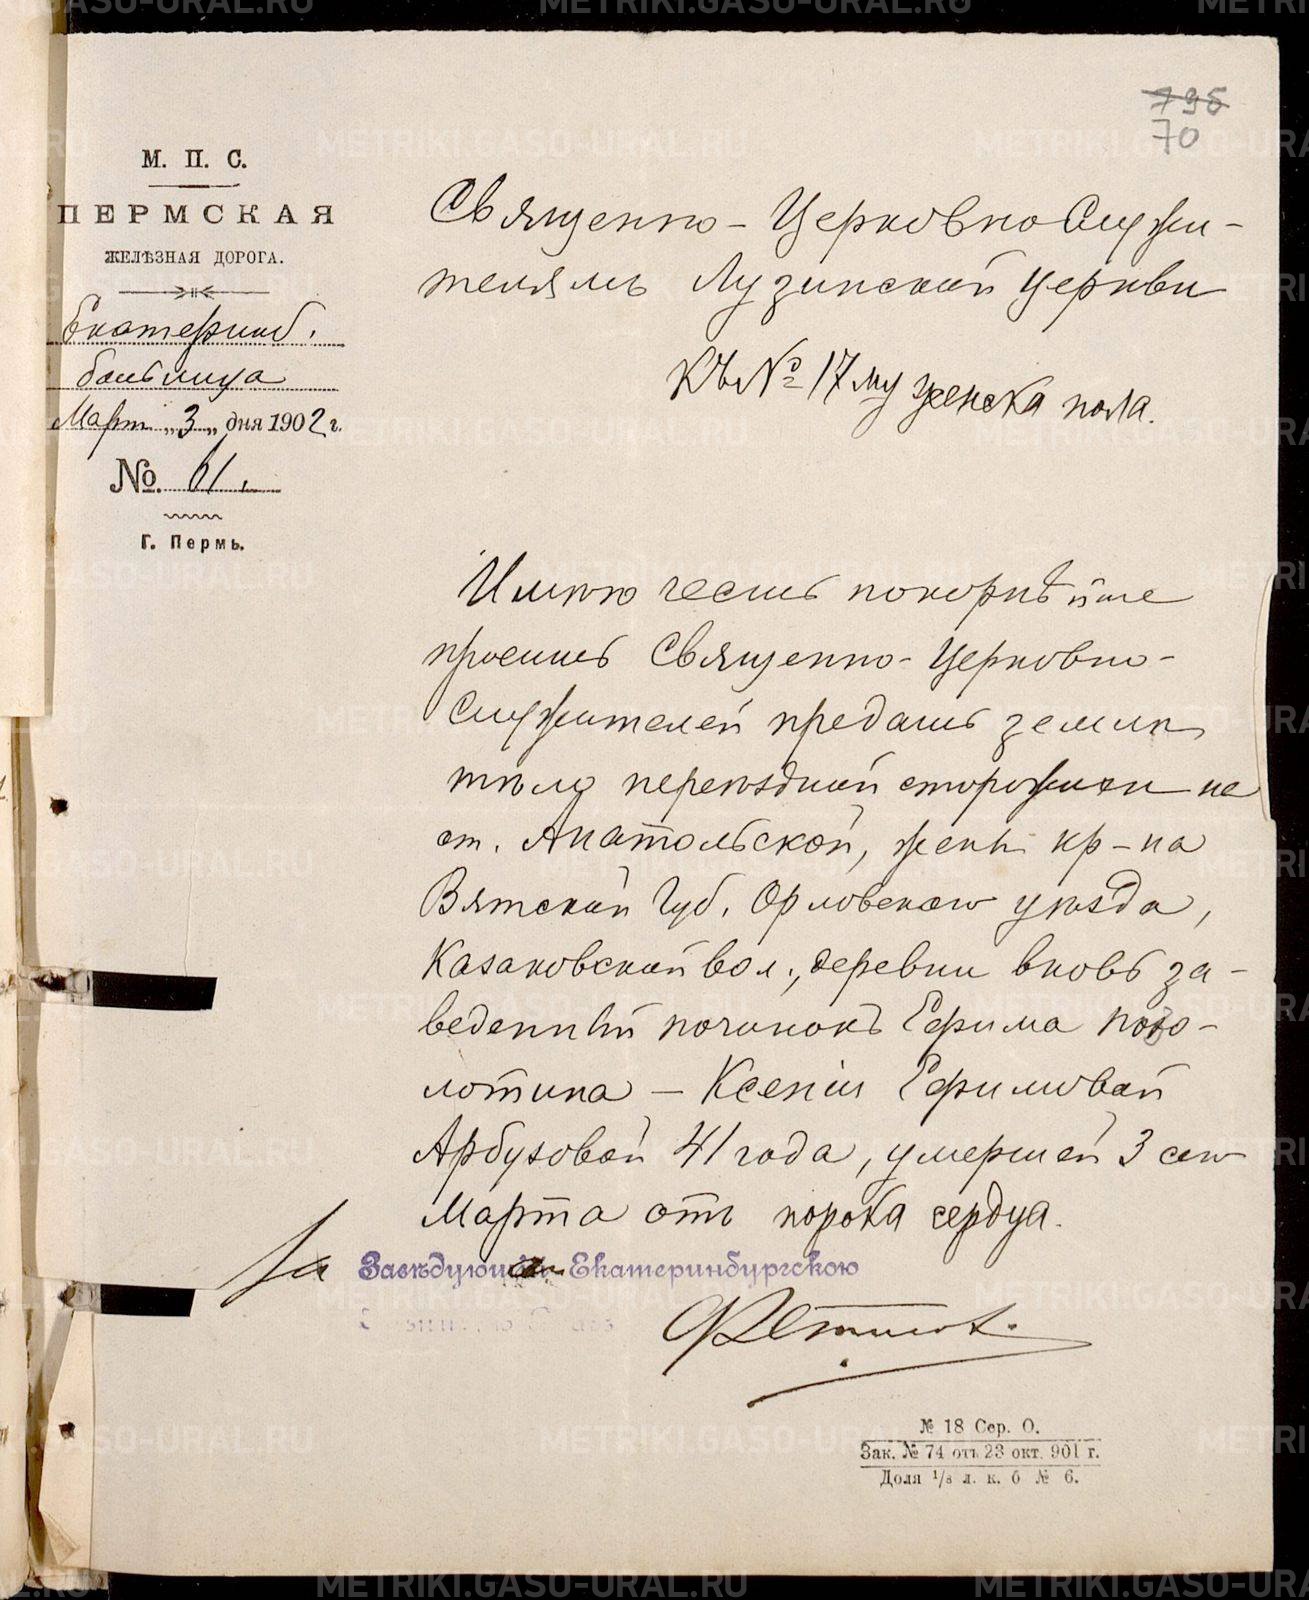 795
70
М. П. С.
ПЕРМСКАЯ
ЖЕЛѢЗНАЯ ДОРОГА.
Екатеринб.
больница
Март „3„ дня 1902 г.
№ 61.
Г. Пермь.
Священно-Церковно Служи-
телямъ Лузинской Церкви
Къ № 17му женска пола.
Имѣю честь покорнѣйше
просить Священно-Церковно-
Служителей предать землѣ
тѣло переѣздной сторожихи на
ст. Анатольской, жены кр-на
Вятской Губ. Орловскаго уѣзда,
Казаковской вол., деревни вновь за-
веденный починокъ Ефима
лотина – Ксеніи Ефимовой
Арбузовой 41 года, умершей 3 сего
Марта отъ порока сердца.
За Завѣдующ Екатеринбургскою
№ 18 Сер. О.
Зак. № 74 отъ 23 окт. 901 г.
Доля 1/8 л. к. б № 6.
METRIKI.GASO-URAL.RU